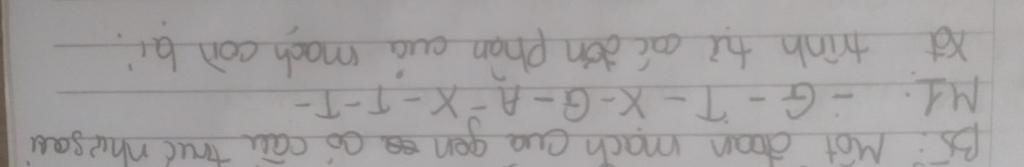 B5: Một đoạn mạch của gen có cấu trúc như sau
M1: - G - T - X - G - A - X - T - T -
Xđ trình tự các đơn phân của mạch còn lại.